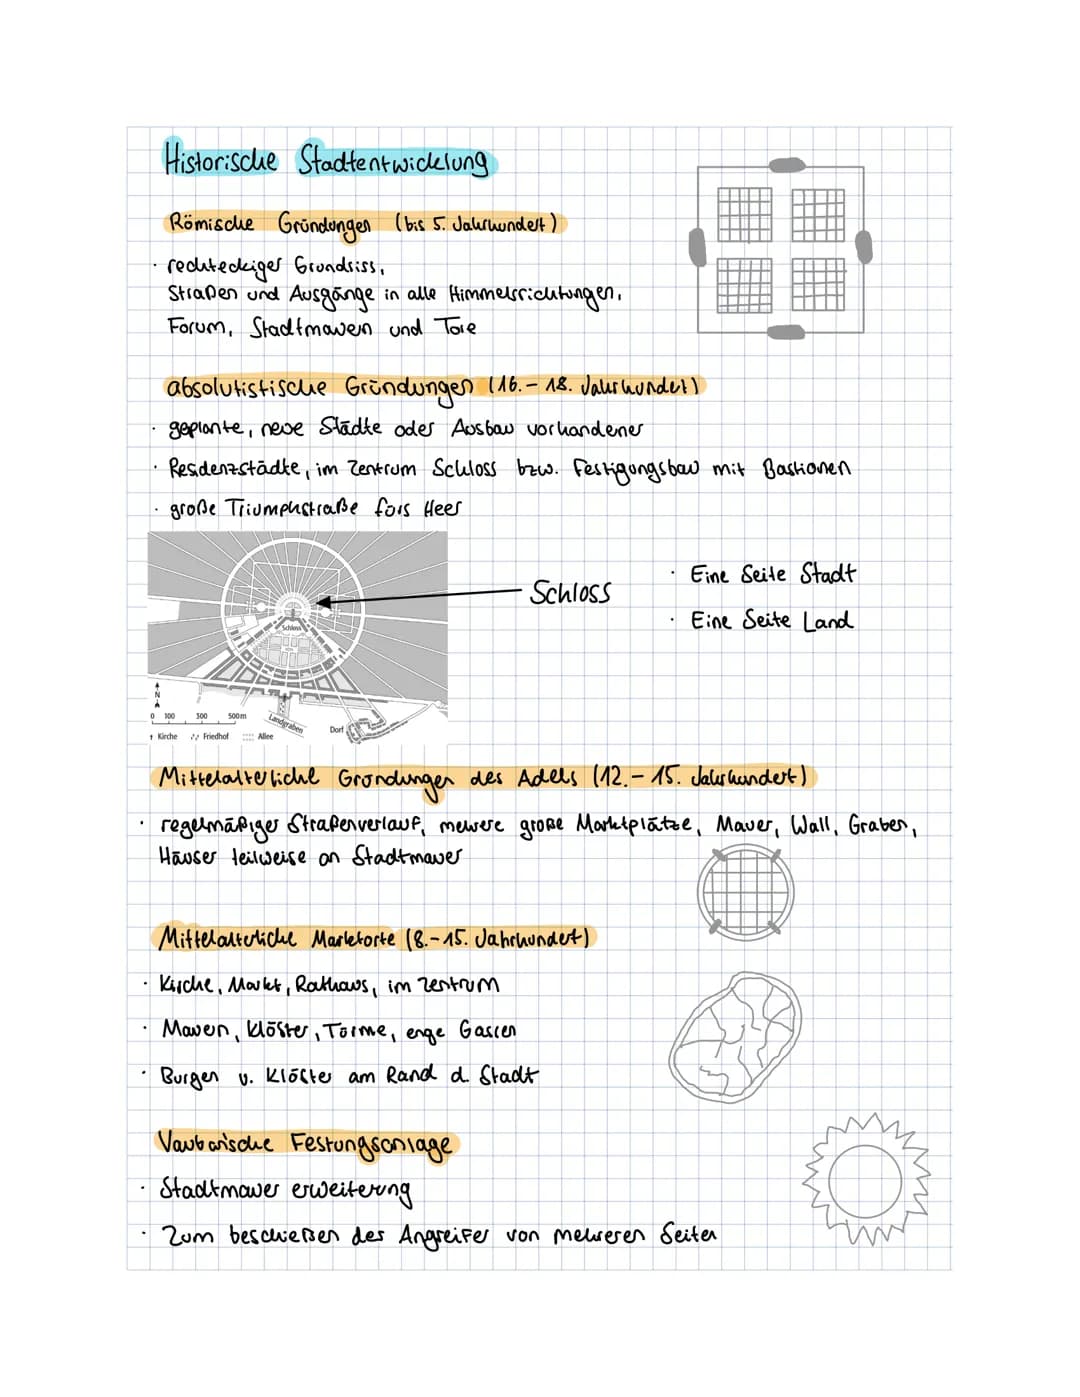 Historische Stadtentwicklung
Römische Gründungen (bis 5. Jahrhundert)
· rechteckiger Grundriss,
Straßen und Ausgänge in alle Himmelsrichtungen,
Forum, Stadtmauern und Tore
absolutistische Gründungen (16.- 18. Jahrhundert)
· geplante, neue Städte oder Ausbau vorhandener
· Residenzstädte, im Zentrum Schloss bzw. Festigungsbau mit Bastionen
· große Triumphstraße fürs Heer
Schloss
· Eine Seite Stadt
· Eine Seite Land
Schloss
N
0 100 300 500m
Landgraben
Dorf
Kirche Friedhof Allee
Mittelalterliche Gründungen des Adels (12.- 15. Jahrhundert)
· regelmäßiger Straßenverlauf, mehrere große Marktplätze, Mauer, Wall, Graben,
Häuser teilweise an Stadtmauer
Mittelalterliche Marktorte (8.-15. Jahrhundert)
· Kirche, Markt, Rathaus, im Zentrum
· Mauern, Klöster, Türme, enge Gassen
· Burgen u. Klöster am Rand d. Stadt
Vaubanische Festungsanlage
· Stadtmauer erweiterung
· Zum beschießen der Angreifer von mehreren Seiten